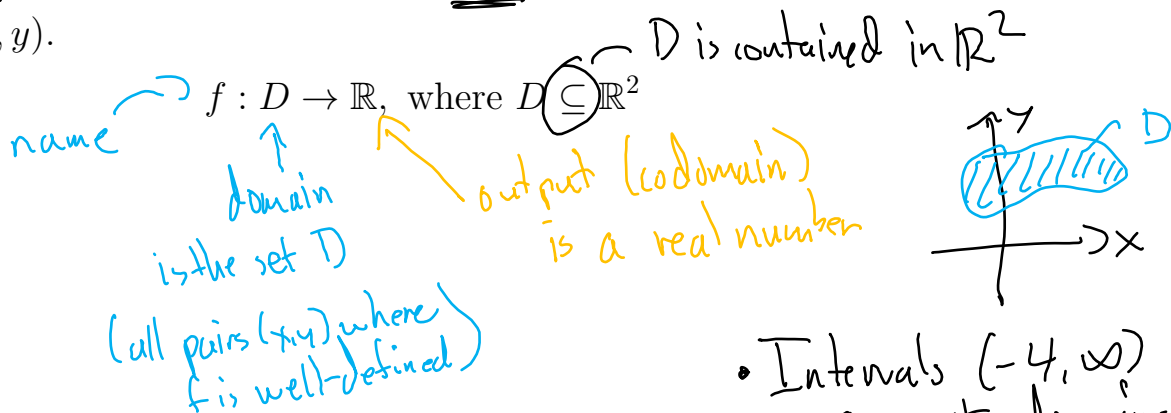 , y).
D is contained in ℝ²
f : D → ℝ, where D ⊆ ℝ²
name
domain
is the set D
(all pairs (x,y) where
f is well-defined)
output (codomain)
is a real number
y
D
x
• Intervals (-4, ∞)